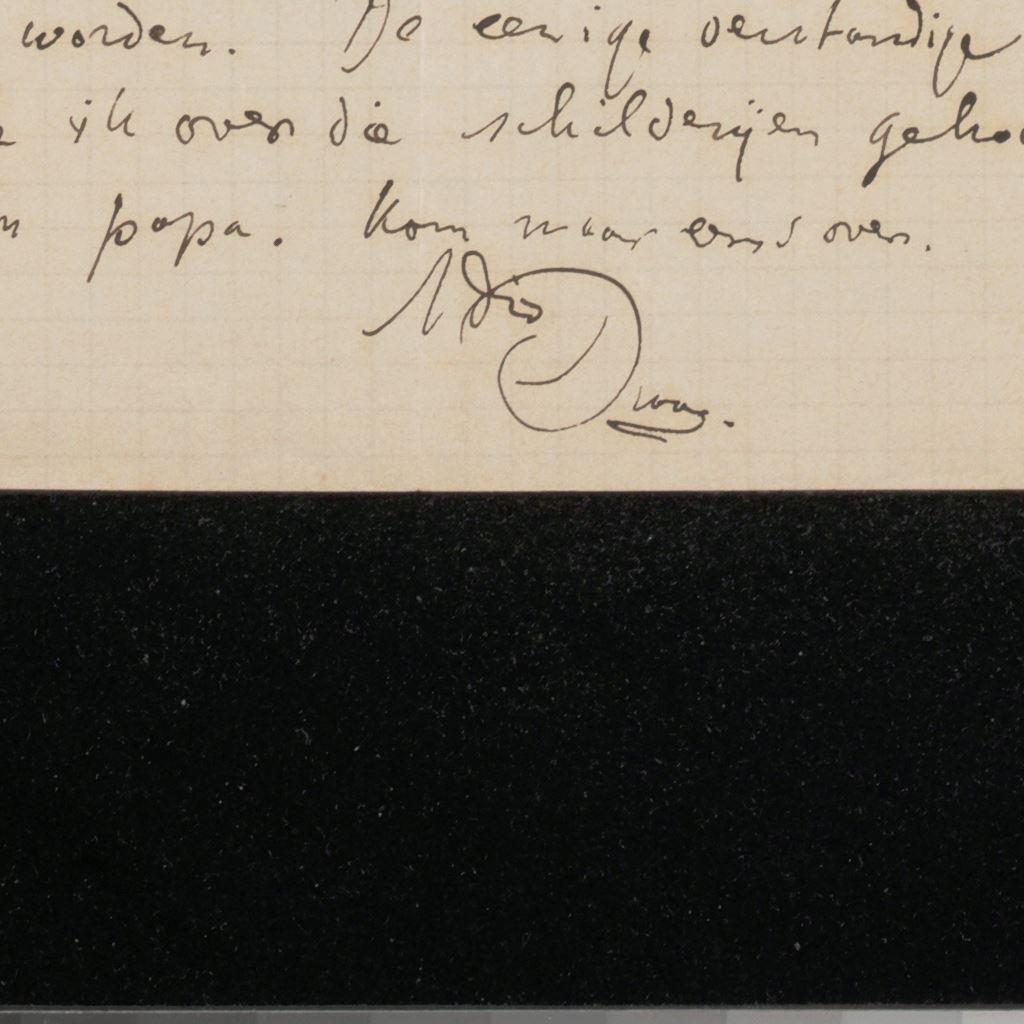 worden. De eenige verstandige
ik over die schilderijen geho
n papa. Kom maar eens over.
Adio